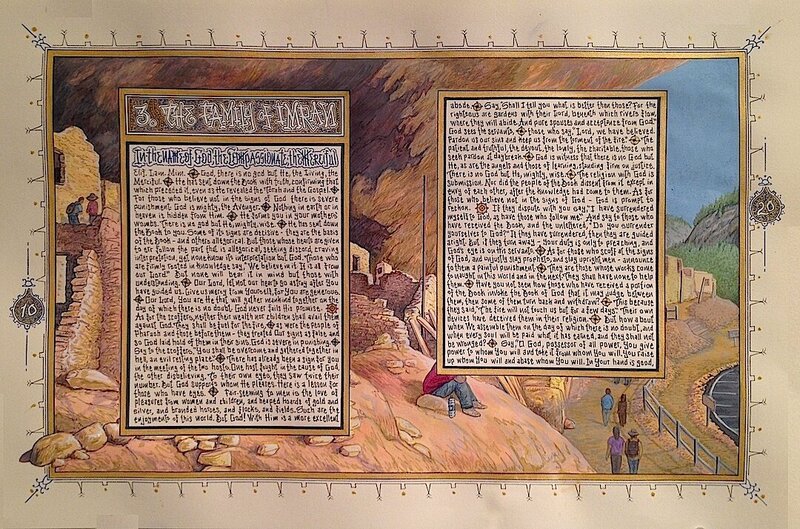 3. THE FAMILY of IMRAN
In the NAME of GOD, the COMPASSIONATE, the MERCIFUL
Elif. Lam. Mim. God, there is no god but He, the Living, the
Merciful. He has sent down the Book with truth, confirming that
which preceded it, even as He revealed the Torah and the Gospel.
For those who believe not in the signs of God there is severe
punishment. God is mighty, the Avenger. Nothing in earth or in
heaven is hidden from Him. He forms you in your mother's
womb. There is no god but He, mighty, wise. He has sent down
the Book to you. Some of its signs are decisive - they are the basis
of the Book - and others allegorical. But those whose hearts are given
to err follow the part that is allegorical, seeking discord, craving
interpretation, yet none know its interpretation but God. Those who
are firmly rooted in knowledge say, "We believe in it. It is all from
our Lord." But none will bear it in mind but those with
understanding. Our Lord, let not our hearts go astray after You
have guided us. Give us mercy from Yourself, for You are generous.
Our Lord, You are He that will gather mankind together on the
day of which there is no doubt. God never fails His promise.
As for the scoffers, neither their wealth nor children shall avail them
against God. They shall be fuel for the fire, as were the people of
Pharaoh and those before them - they treated Our signs as false, and
so God laid hold of them in their sins. God is severe in punishing.
Say to the scoffers, "You shall be overcome and gathered together in
hell, an evil resting place." There has already been a sign for you
in the meeting of the two hosts. One host fought in the cause of God,
the other disbelieving. To their own eyes, they saw twice their
number. But God supports whom He pleases. There is a lesson for
those who have eyes. Fair-seeming to men is the love of
pleasures from women and children, and heaped hoards of gold and
silver, and branded horses, and flocks, and fields. Such are the
enjoyments of this world. But God! With Him is a more excellent
abode. Say, "Shall I tell you what is better than those? For the
righteous are gardens with their Lord, beneath which rivers flow,
where they will abide. And pure spouses and acceptance from God."
God sees the servants, those who say, "Lord, we have believed.
Pardon us our sins and keep us from the torment of the fire." The
patient and truthful, the devout, the lowly, the charitable, those who
seek pardon at daybreak. God is witness that there is no god but
He, as are the angels and those of learning, standing firm on justice.
There is no god but He, mighty, wise. The religion with God is
submission. Nor did the people of the Book dissent from it except in
envy of each other, after the knowledge had come to them. As for
those who believe not in the signs of God - God is prompt to
reckon. If they dispute with you say, "I have surrendered
myself to God, as have those who follow me." And say to those who
have received the Book, and the unlettered, "Do you surrender
yourselves to God?" If they surrender, then they are guided
aright. But if they turn away - your duty is only to preaching, and
God's eye is on His servants. As for those who scoff at the signs
of God, and unjustly slay prophets, and slay upright men - announce
to them a painful punishment. They are those whose works come
to naught in this world and in the next. They shall have none to help
them. Have you not seen how those who have received a portion
of the Book invoke the Book of God that it may judge between
them, then some of them turn back and withdraw? This because
they said, "The fire will not touch us but for a few days." Their own
devices have deceived them in their religion. But how about
when We assemble them on the day of which there is no doubt, and
when every soul will be paid what it has earned, and they shall not
be wronged? Say, "O God, possessor of all power, You give
power to whom You will and take it from whom You will. You raise
up whom You will and abase whom You will. In Your hand is good,
10
26